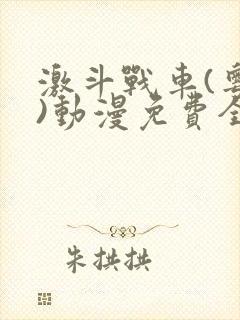 激斗戰車(
)動漫免費全
朱拱拱